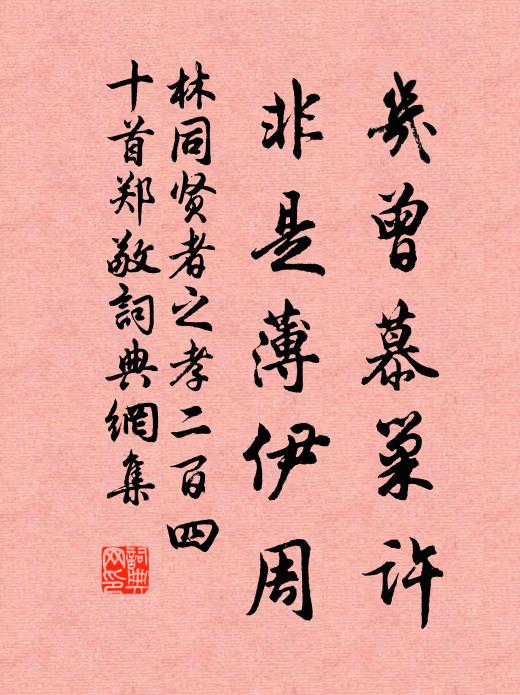 幾曾慕巢許
非是薄伊周
林同贤者之孝二百四
十首郑敬詞典網集
詞典网印